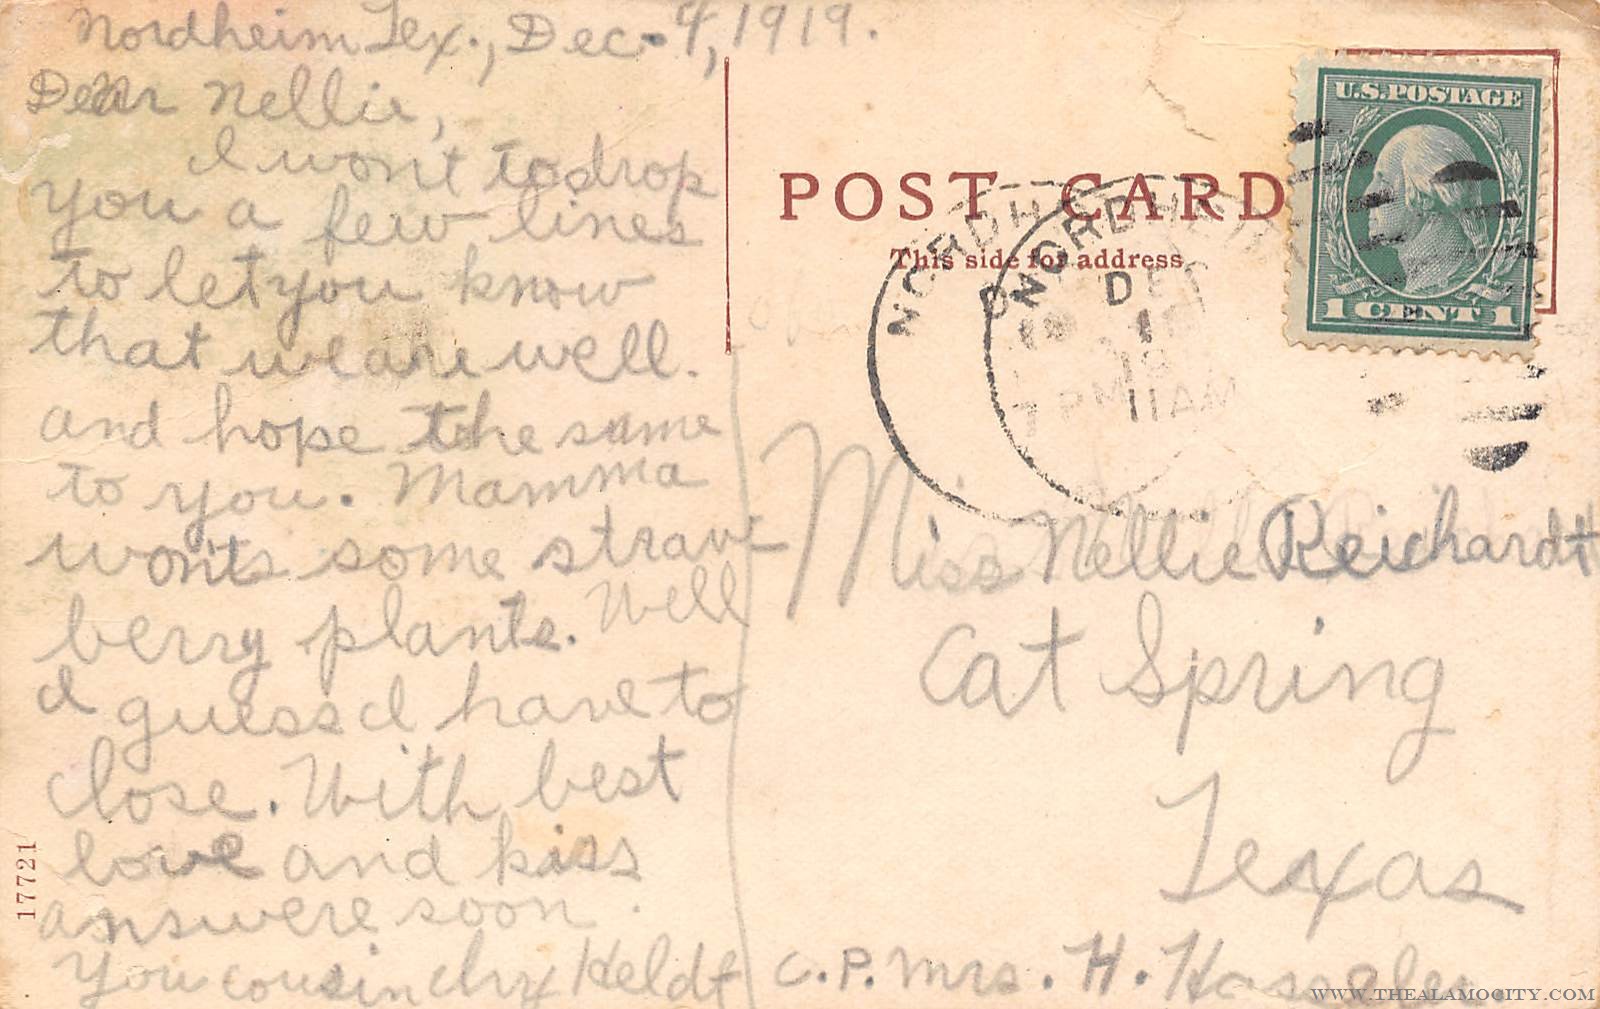 Nordheim Tex., Dec. 4, 1919.
Dear Nellie,
I wont to drop
you a few lines
to let you know
that we are well.
and hope the same
to you. Mamma
wonts some straw-
berry plants. Well
I guess I have to
close. With best
love and kiss
answere soon.
You cousin Heldt
17721
POST CARD
This side for address
U.S. POSTAGE
1 CENT 1
NORDHEIM
NORDHEIM
DEC
11 AM
Miss Nellie Reichardt
Cat Spring
Texas
C.P. Mrs. H.
WWW.THEALAMOCITY.COM